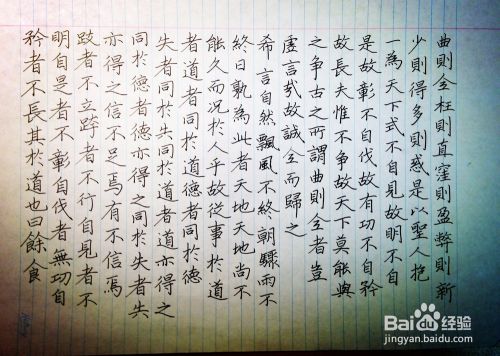 曲則全枉則直窪則盈弊則新
少則得多則惑是以聖人抱
一為天下式不自見故明不自
是故彰不自伐故有功不自矜
故長夫惟不争故天下莫能與
之争古之所謂曲則全者豈
虛言哉故誠全而歸之
希言自然飄風不終朝驟雨不
終日孰為此者天地天地尚不
能久而況於人乎故從事於道
者道者同於道德者同於德
失者同於失同於道者道亦得之
同於德者德亦得之同於失者失
亦得之信不足焉有不信焉
跂者不立跨者不行自見者不
明自是者不彰自伐者無功自
矜者不長其於道也曰餘食
Bai百度经验
jingyan.baidu.com